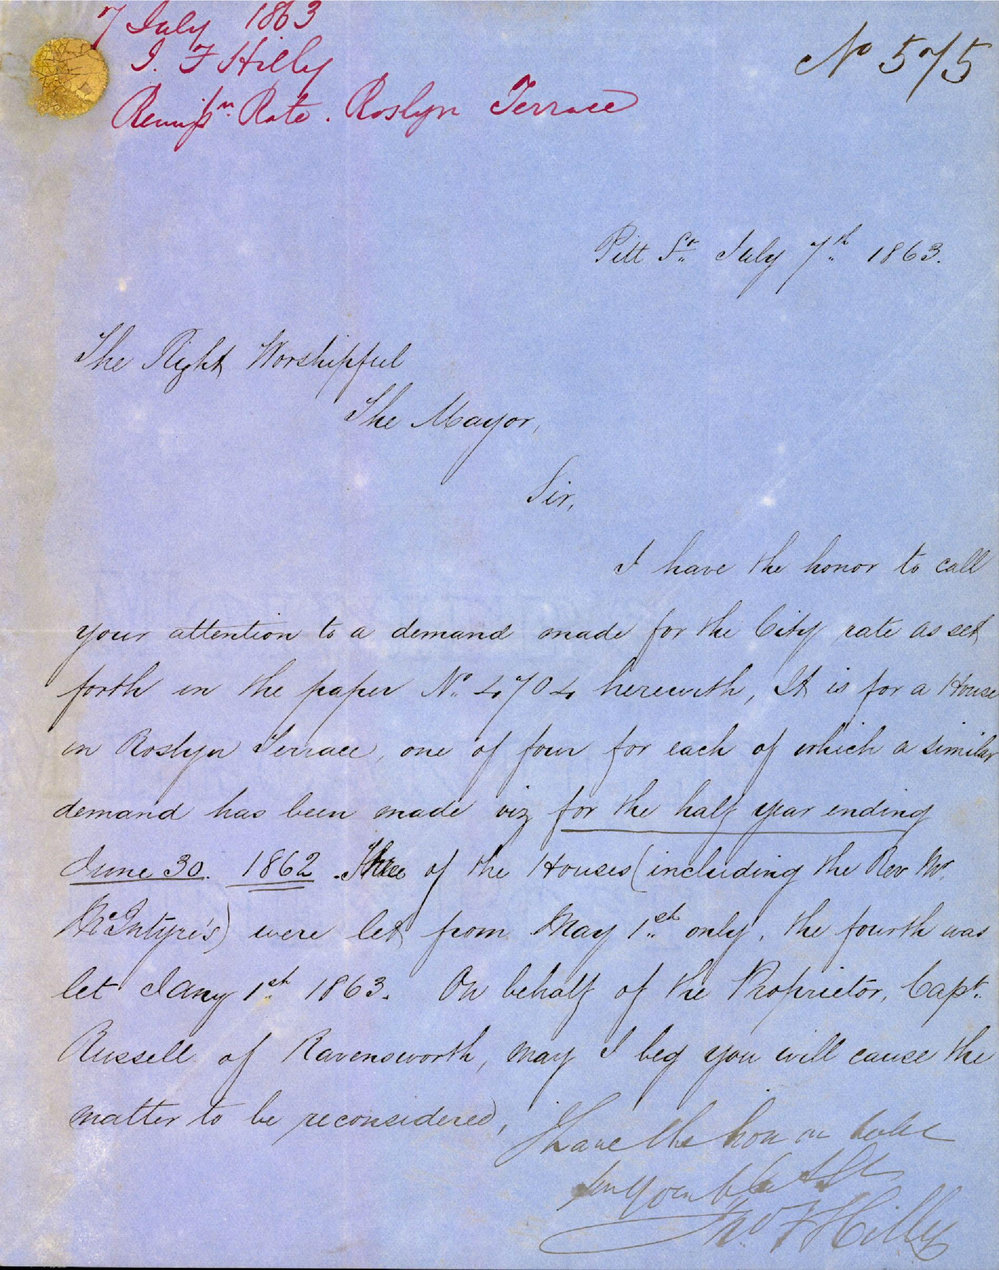 7 July 1863
J. F Hilly
Remissn. Rate. Roslyn Terrace
No 575
Pitt St. July 7th 1863.
The Right Worshipful
The Mayor,
Sir,
I have the honor to call
your attention to a demand made for the City rate as set
forth in the paper No. 4704 herewith, It is for a House
in Roslyn Terrace, one of four for each of which a similar
demand has been made viz for the half year ending
June 30. 1862. Three of the Houses (including the Rev Mr.
McIntyre's) were let from May 1st only, the fourth was
let Jany 1st 1863. On behalf of the Proprietor, Capt.
Russell of Ravensworth, may I beg you will cause the
matter to be reconsidered,
I have the honor to be
Sir Your
Jno F Hilly